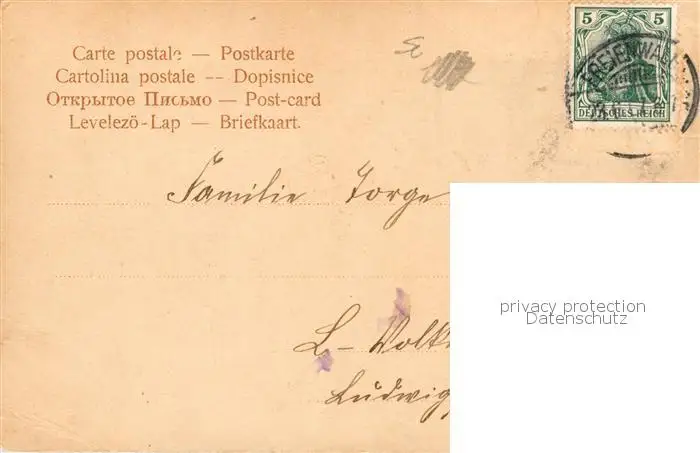 Carte postale — Postkarte
Cartolina postale -- Dopisnice
Открытое Письмо — Post-card
Levelező-Lap — Briefkaart.
5 5
DEUTSCHES REICH
Familie Jorge
privacy protection
Datenschutz
L-
Ludwig